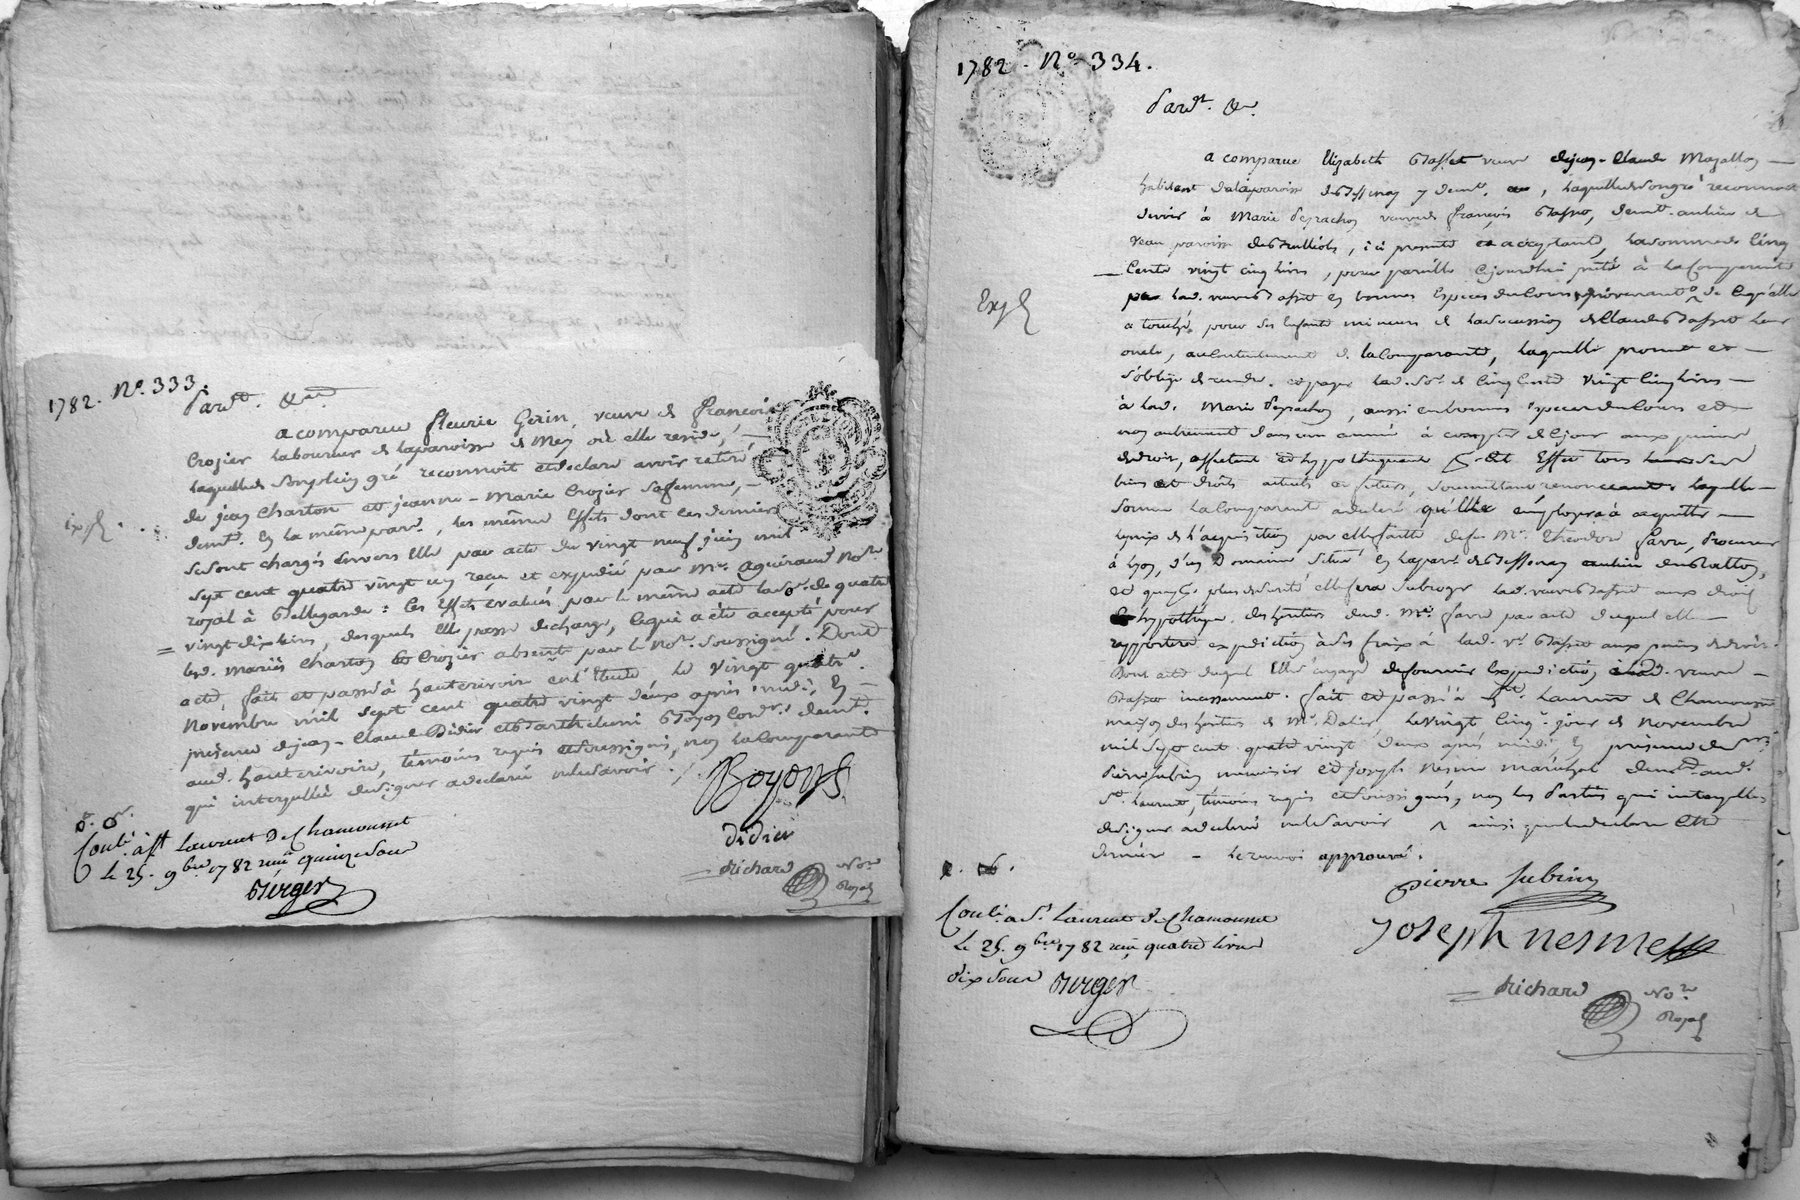 1782. N.º 333.
Pard.t &.a
a comparu fleurie Gerin, veuve de françois
Crozier laboureur de la paroisse de Meys où elle reside,
laquelle de son plein gré reconnoit et declare avoir retiré
de jean Charton et jeanne-Marie Crozier sa femme,
demt. en la même par.sse, les mêmes Effets dont ces derniers
se sont chargés envers Elle par acte du vingt neuf juin mil
sept cent quatre vingt un reçu et expedié par Me. Aguiraud No.re
royal à Bellegarde : Ces Effets evalués par le même acte la So. de quatre
vingt dix livres, desquels Elle passe decharge, ce qui a été accepté pour
lesd. mariés Charton et Crozier absents par le No.re Soussigné. Dont
acte, fait et passé à hauterivoire en l'Etude le vingt quatre
Novembre mil sept cent quatre vingt deux après midi, En
presence de jean-Claude Didier et Barthelemi Boyon Cord.rs demt.
aud. hauterivoire, temoins requis et soussignés, non la Comparante
qui interpellée de signer a declaré ne le savoir ./.
Exp.é
Boyon
didier
Richard No.re
Royal
Conté. à St Laurent De Chamousset
Le 25. 9bre 1782 reçu quinze sous
Berger
1782. N.º 334.
Pard.t &.a
a comparue Elizabeth Basset veuve de jean-Claude Mazallon
habitant de la paroisse de Bessenay y demt. , laquelle de son gré reconnoit
devoir à Marie Peyrachon veuve de françois Basset, demt. au lieu de
veau paroisse de Brulliols, ici presente et acceptante, la somme de Cinq
Cents vingt cinq livres, pour pareille Cejourdhui prêté à la Comparante
par lad. veuve Basset en bonnes Especes du Cours provenant de ce qu'elle
a touché pour ses Enfants mineurs de la succession de Claude Basset leur
oncle, au Contentement de la Comparante, laquelle promet et
s'oblige de rendre et payer lad. So. de Cinq Cents vingt Cinq livres
à lad. Marie Peyrachon, aussi en bonnes Especes du Cours et
non autrement dans une année à compter de Ce jour aux peines
de droit, affectant et hypothequant à cet Effet tous ses
biens et droits actuels et futurs, soumettant renonceant. laquelle
Somme la Comparante a declaré qu'Elle employera à acquitter
le prix de l'acquisition par elle faite de feu Me. Theodore favre, Procureur
à Lyon, d'un Domaine Situé En la par.sse de Bessenay au lieu du Ratton,
et que pour plus de sureté elle fera subroger lad. veuve Basset aux droits
et hypotheque des heritiers dud. Me. favre par acte duquel elle
rapportera expedition à ses fraix à lad. ve. Basset aux peines de droit.
Dont acte duquel Elle s'engage de fournir Expedition à lad. veuve
Basset incessamment. fait et passé à St. Laurent de Chamousset
maison des heritiers de Me. Dalin, le vingt Cinq.e jour de Novembre
mil sept cent quatre vingt deux après midi, En presence de Srs.
Pierre Subrin menuisier et joseph Nesme maréchal demts. aud.
St. Laurent, temoins requis et soussignés, non les Parties qui interpellées
de signer a declaré ne le savoir ^ ainsi que l'a declaré Cette
derniere - le renvoi approuvé.
Exp.é
pierre subrin
Joseph nesme
Richard No.re
Royal
Conté. à St. Laurent De Chamousset
Le 25. 9bre 1782 reçu quatre livres
dix sous Berger